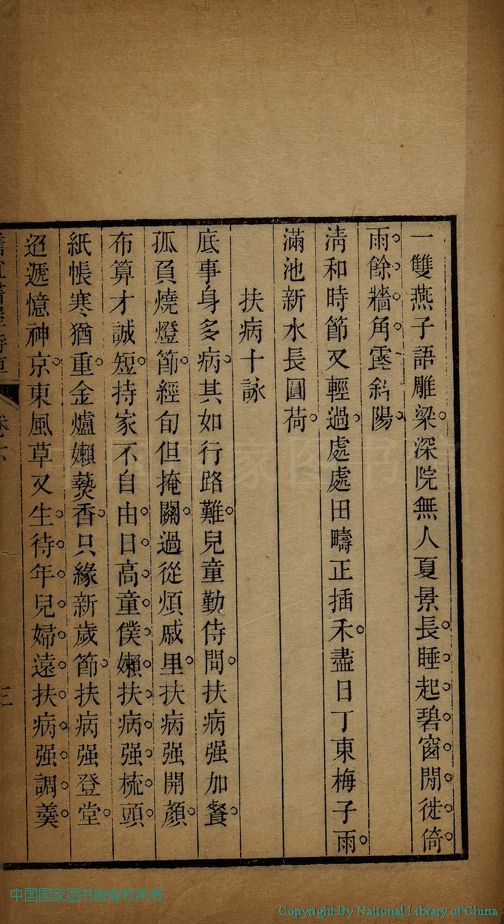 一雙燕子語雕梁深院無人夏景長睡起碧窗閒徙倚
雨餘牆角露斜陽
清和時節又輕過處處田疇正插禾盡日丁東梅子雨
滿池新水長圓荷
扶病十詠
底事身多病其如行路難兒童勤侍問扶病强加餐
孤負燒燈節經旬但掩關過從煩戚里扶病强開顏
布算才誠短持家不自由日高童僕嬾扶病强梳頭
紙帳寒猶重金爐嬾爇香只緣新歲節扶病强登堂
迢遞憶神京東風草又生待年兒婦遠扶病强調羹
三
Copyright By National Library of China